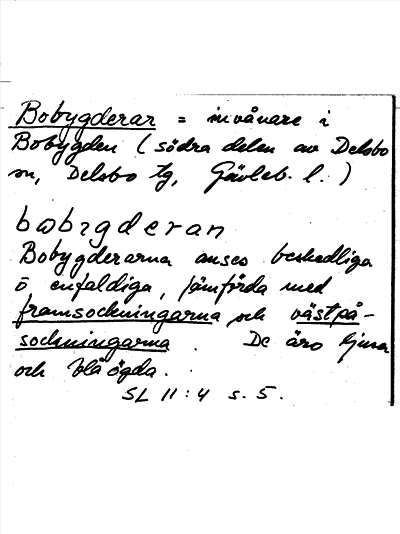 Bobygderar = invånare i
Bobygden (södra delen av Delsbo
sn, Delsbo tg, Gävleb. l.)
bobıgderan
Bobygderarna anses beskedliga
o enfaldiga, jämförda med
framsockningarna och västpå-
sockningarna. De äro ljusa
och blåögda.
SL 11:4 s. 5.